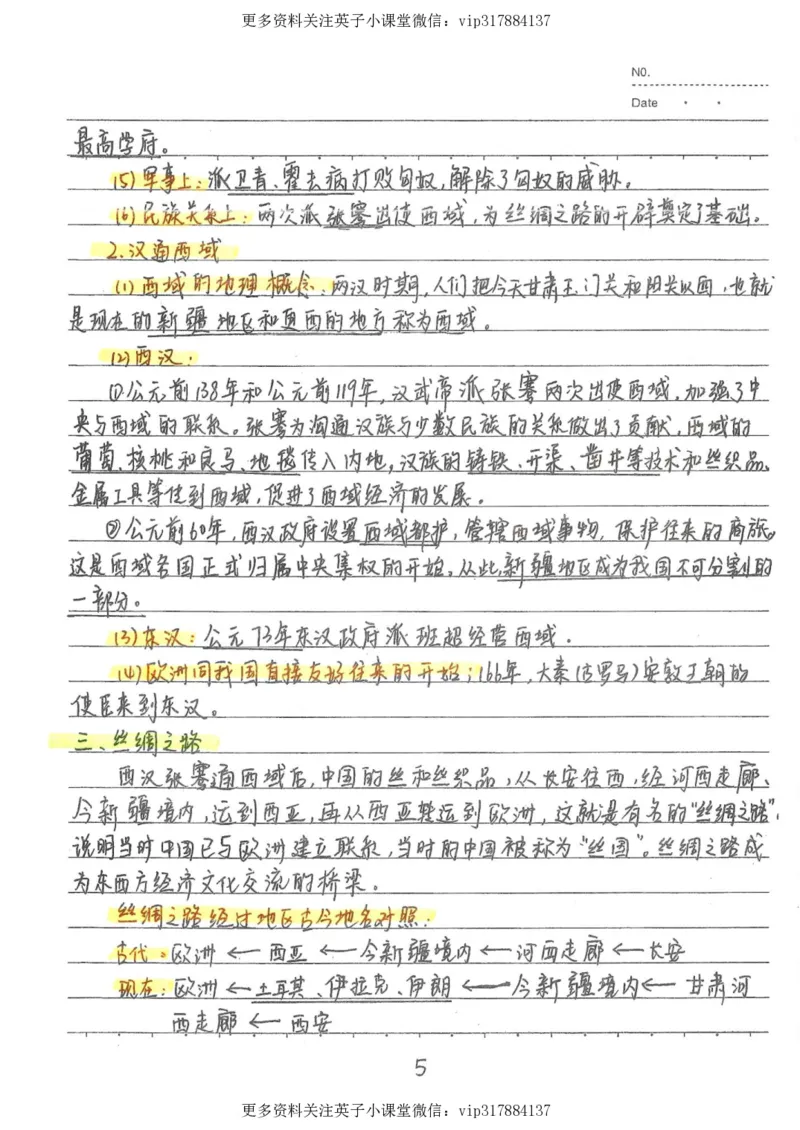 更多资料关注英子小课堂微信：vip317884137
NO.
Date
最高学府。
(5)军事上：派卫青、霍去病打败匈奴，解除了匈奴的威胁。
(6)民族关系上：两次派张骞出使西域，为丝绸之路的开辟奠定了基础。
2.汉通西域
(1)西域的地理概念：两汉时期，人们把今天甘肃玉门关和阳关以西，也就
是现在的新疆地区和更西的地方称为西域。
(2)西汉：
①公元前138年和公元前119年，汉武帝派张骞两次出使西域，加强了中
央与西域的联系。张骞为沟通汉族与少数民族的关系做出了贡献，西域的
葡萄、核桃和良马、地毯传入内地，汉族的铸铁、开渠、凿井等技术和丝织品、
金属工具等传到西域，促进了西域经济的发展。
②公元前60年，西汉政府设置西域都护，管辖西域事物，保护往来的商旅。
这是西域各国正式归属中央集权的开始。从此，新疆地区成为我国不可分割的
一部分。
(3)东汉：公元73年东汉政府派班超经营西域.
(4)欧洲同我国直接友好往来的开始；166年，大秦(古罗马)安敦王朝的
使臣来到东汉。
三、丝绸之路
西汉张骞通西域后，中国的丝和丝织品，从长安往西，经河西走廊、
今新疆境内，运到西亚，再从西亚转运到欧洲，这就是有名的“丝绸之路”，
说明当时中国已与欧洲建立联系，当时的中国被称为“丝国”。丝绸之路成
为东西方经济文化交流的桥梁。
丝绸之路经过地区古今地名对照：
古代：欧洲←西亚←今新疆境内←河西走廊←长安
现在：欧洲←土耳其、伊拉克、伊朗←今新疆境内←甘肃河
西走廊←西安
5
更多资料关注英子小课堂微信：vip317884137